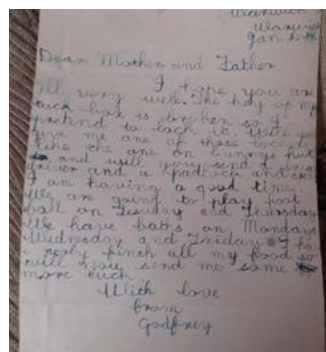 Warwick
Warwick
Jan
Dear Mother and Father
I hope you are
all very well. The key of my
tuck box is broken so I
pretend to lock it. Will you
give me one of those locks
like the one on bunnys hut
and will you send a screw
driver and a padlock and
I am having a good time.
We are going to play foot
ball on Tesuday and Thursday
We have baths on Monday
Wednesday and Friday
finch all my food so
will you send me some
more tuck.
With love
from
Godfrey